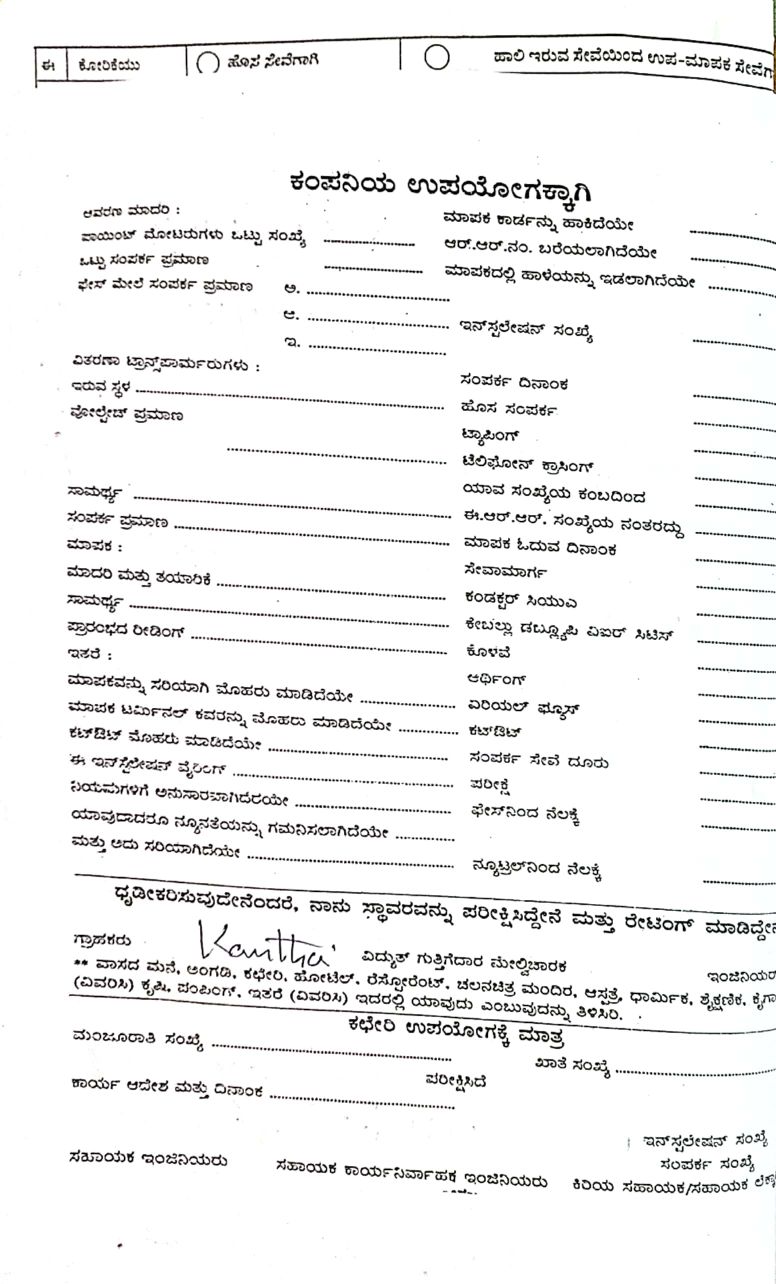 ಈ ಕೋರಿಕೆಯು ಹೊಸ ಸೇವೆಗಾಗಿ ಹಾಲಿ ಇರುವ ಸೇವೆಯಿಂದ ಉಪ-ಮಾಪಕ ಸೇವೆಗಾ
ಕಂಪನಿಯ ಉಪಯೋಗಕ್ಕಾಗಿ
ಆವರಣ ಮಾದರಿ : ಮಾಪಕ ಕಾರ್ಡನ್ನು ಹಾಕಿದೆಯೇ ....................
ಪಾಯಿಂಟ್ ಮೋಟರುಗಳು ಒಟ್ಟು ಸಂಖ್ಯೆ .................... ಆರ್.ಆರ್.ನಂ. ಬರೆಯಲಾಗಿದೆಯೇ ....................
ಒಟ್ಟು ಸಂಪರ್ಕ ಪ್ರಮಾಣ .................... ಮಾಪಕದಲ್ಲಿ ಹಾಳೆಯನ್ನು ಇಡಲಾಗಿದೆಯೇ ....................
ಫೇಸ್ ಮೇಲೆ ಸಂಪರ್ಕ ಪ್ರಮಾಣ ಅ. ....................
ಆ. .................... ಇನ್‌ಸ್ಟಲೇಷನ್ ಸಂಖ್ಯೆ ....................
ಇ. ....................
ವಿತರಣಾ ಟ್ರಾನ್ಸ್‌ಪಾರ್ಮರುಗಳು : ಸಂಪರ್ಕ ದಿನಾಂಕ ....................
ಇರುವ ಸ್ಥಳ .................... ಹೊಸ ಸಂಪರ್ಕ ....................
ವೋಲ್ಟೇಜ್ ಪ್ರಮಾಣ ಟ್ಯಾಪಿಂಗ್ ....................
.................... ಟೆಲಿಫೋನ್ ಕ್ರಾಸಿಂಗ್ ....................
ಸಾಮರ್ಥ್ಯ .................... ಯಾವ ಸಂಖ್ಯೆಯ ಕಂಬದಿಂದ ....................
ಸಂಪರ್ಕ ಪ್ರಮಾಣ .................... ಈ.ಆರ್.ಆರ್. ಸಂಖ್ಯೆಯ ನಂತರದ್ದು ....................
ಮಾಪಕ : ಮಾಪಕ ಓದುವ ದಿನಾಂಕ ....................
ಮಾದರಿ ಮತ್ತು ತಯಾರಿಕೆ .................... ಸೇವಾಮಾರ್ಗ ....................
ಸಾಮರ್ಥ್ಯ .................... ಕಂಡಕ್ಟರ್ ಸಿಯುಎ ....................
ಪ್ರಾರಂಭದ ರೀಡಿಂಗ್ .................... ಕೇಬಲ್ಲು ಡಬ್ಲ್ಯೂಪಿ ವಿಐರ್ ಸಿಟಿಸ್ ....................
ಇತರೆ : ಕೊಳವೆ ....................
ಮಾಪಕವನ್ನು ಸರಿಯಾಗಿ ಮೊಹರು ಮಾಡಿದೆಯೇ .................... ಆರ್ಥಿಂಗ್ ....................
ಮಾಪಕ ಟರ್ಮಿನಲ್ ಕವರನ್ನು ಮೊಹರು ಮಾಡಿದೆಯೇ .................... ಏರಿಯಲ್ ಫ್ಯೂಸ್ ....................
ಕಟ್‌ಔಟ್ ಮೊಹರು ಮಾಡಿದೆಯೇ .................... ಕಟ್‌ಔಟ್ ....................
ಈ ಇನ್‌ಸ್ಟಲೇಷನ್ ವೈರಿಂಗ್ .................... ಸಂಪರ್ಕ ಸೇವೆ ದೂರು ....................
ನಿಯಮಗಳಿಗೆ ಅನುಸಾರವಾಗಿದೆರಯೇ .................... ಪರೀಕ್ಷೆ ....................
ಯಾವುದಾದರೂ ನ್ಯೂನತೆಯನ್ನು ಗಮನಿಸಲಾಗಿದೆಯೇ .................... ಫೇಸ್‌ನಿಂದ ನೆಲಕ್ಕೆ ....................
ಮತ್ತು ಅದು ಸರಿಯಾಗಿದೆಯೇ .................... ನ್ಯೂಟ್ರಲ್‌ನಿಂದ ನೆಲಕ್ಕೆ ....................
ಧೃಡೀಕರಿಸುವುದೇನೆಂದರೆ, ನಾನು ಸ್ಥಾವರವನ್ನು ಪರೀಕ್ಷಿಸಿದ್ದೇನೆ ಮತ್ತು ರೇಟಿಂಗ್ ಮಾಡಿದ್ದೇನೆ
ಗ್ರಾಹಕರು Kantha ವಿದ್ಯುತ್ ಗುತ್ತಿಗೆದಾರ ಮೇಲ್ವಿಚಾರಕ ಇಂಜಿನಿಯರ
** ವಾಸದ ಮನೆ, ಅಂಗಡಿ, ಕಛೇರಿ, ಹೋಟೆಲ್, ರೆಸ್ಟೋರೆಂಟ್, ಚಲನಚಿತ್ರ ಮಂದಿರ, ಆಸ್ಪತ್ರೆ, ಧಾರ್ಮಿಕ, ಶೈಕ್ಷಣಿಕ, ಕೈಗಾ
(ವಿವರಿಸಿ) ಕೃಷಿ, ಪಂಪಿಂಗ್, ಇತರೆ (ವಿವರಿಸಿ) ಇದರಲ್ಲಿ ಯಾವುದು ಎಂಬುವುದನ್ನು ತಿಳಿಸಿರಿ.
ಕಛೇರಿ ಉಪಯೋಗಕ್ಕೆ ಮಾತ್ರ
ಮಂಜೂರಾತಿ ಸಂಖ್ಯೆ .................... ಖಾತೆ ಸಂಖ್ಯೆ ....................
ಪರೀಕ್ಷಿಸಿದೆ
ಕಾರ್ಯ ಆದೇಶ ಮತ್ತು ದಿನಾಂಕ ....................
ಇನ್‌ಸ್ಟಲೇಷನ್ ಸಂಖ್ಯೆ
ಸಂಪರ್ಕ ಸಂಖ್ಯೆ
ಸಹಾಯಕ ಇಂಜಿನಿಯರು ಸಹಾಯಕ ಕಾರ್ಯನಿರ್ವಾಹಕ ಇಂಜಿನಿಯರು ಕಿರಿಯ ಸಹಾಯಕ/ಸಹಾಯಕ ಲೆಕ್ಕಾ